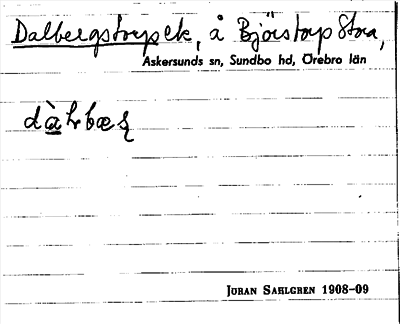 Dalbergstorpet, å Björstorp Stora,
Askersunds sn, Sundbo hd, Örebro län
Jöran Sahlgren 1908-09